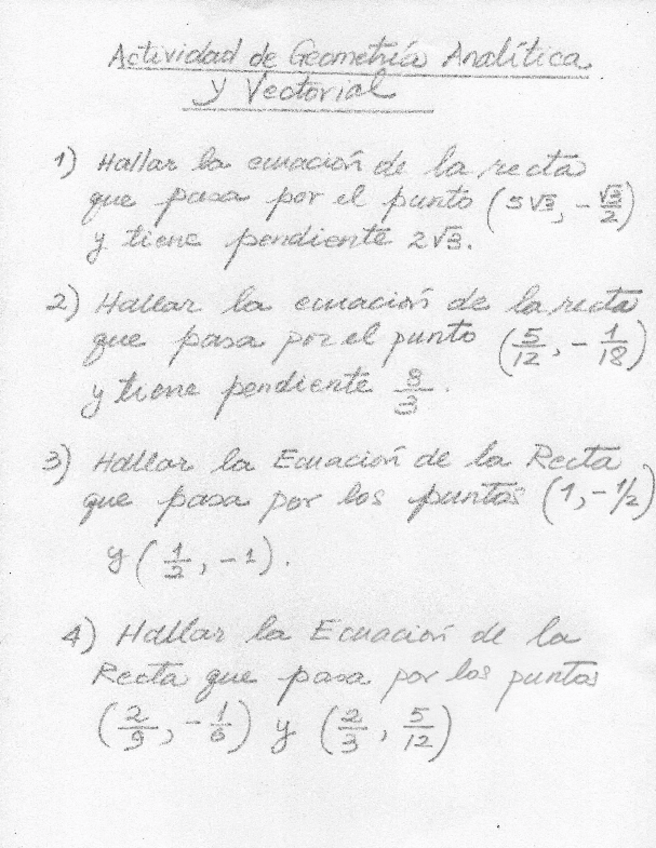 Actividad de Geometría Analítica
y Vectorial
1) Hallar la ecuación de la recta
que pasa por el punto (5√3, -√3/2)
y tiene pendiente 2√3.
2) Hallar la ecuación de la recta
que pasa por el punto (5/12, -1/18)
y tiene pendiente 8/3.
3) Hallar la Ecuación de la Recta
que pasa por los puntos (1, -1/2)
y (1/2, -1).
4) Hallar la Ecuación de la
Recta que pasa por los puntos
(2/9, -1/6) y (2/3, 5/12)